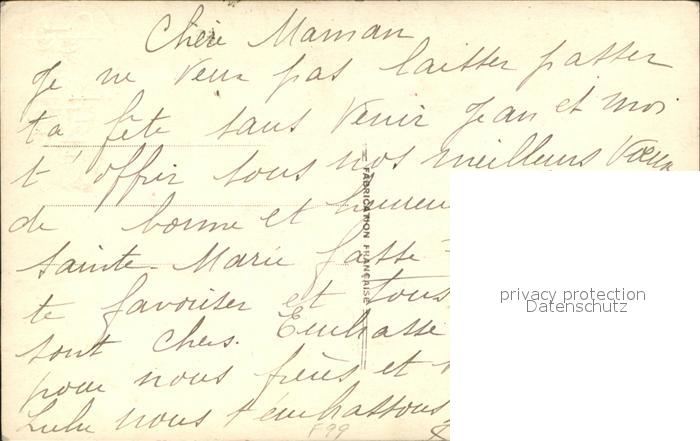 Chère Maman
Je ne veux pas laisser passer
ta fête sans venir Jean et moi
t'offrir tous nos meilleurs Vœux
de bonne et
Sainte-Marie fasse
te favoriser et tous
sont chers. Embrasse
pour nous frères et
Lulu nous t'embrassons
FABRICATION FRANÇAISE
privacy protection
Datenschutz
F99